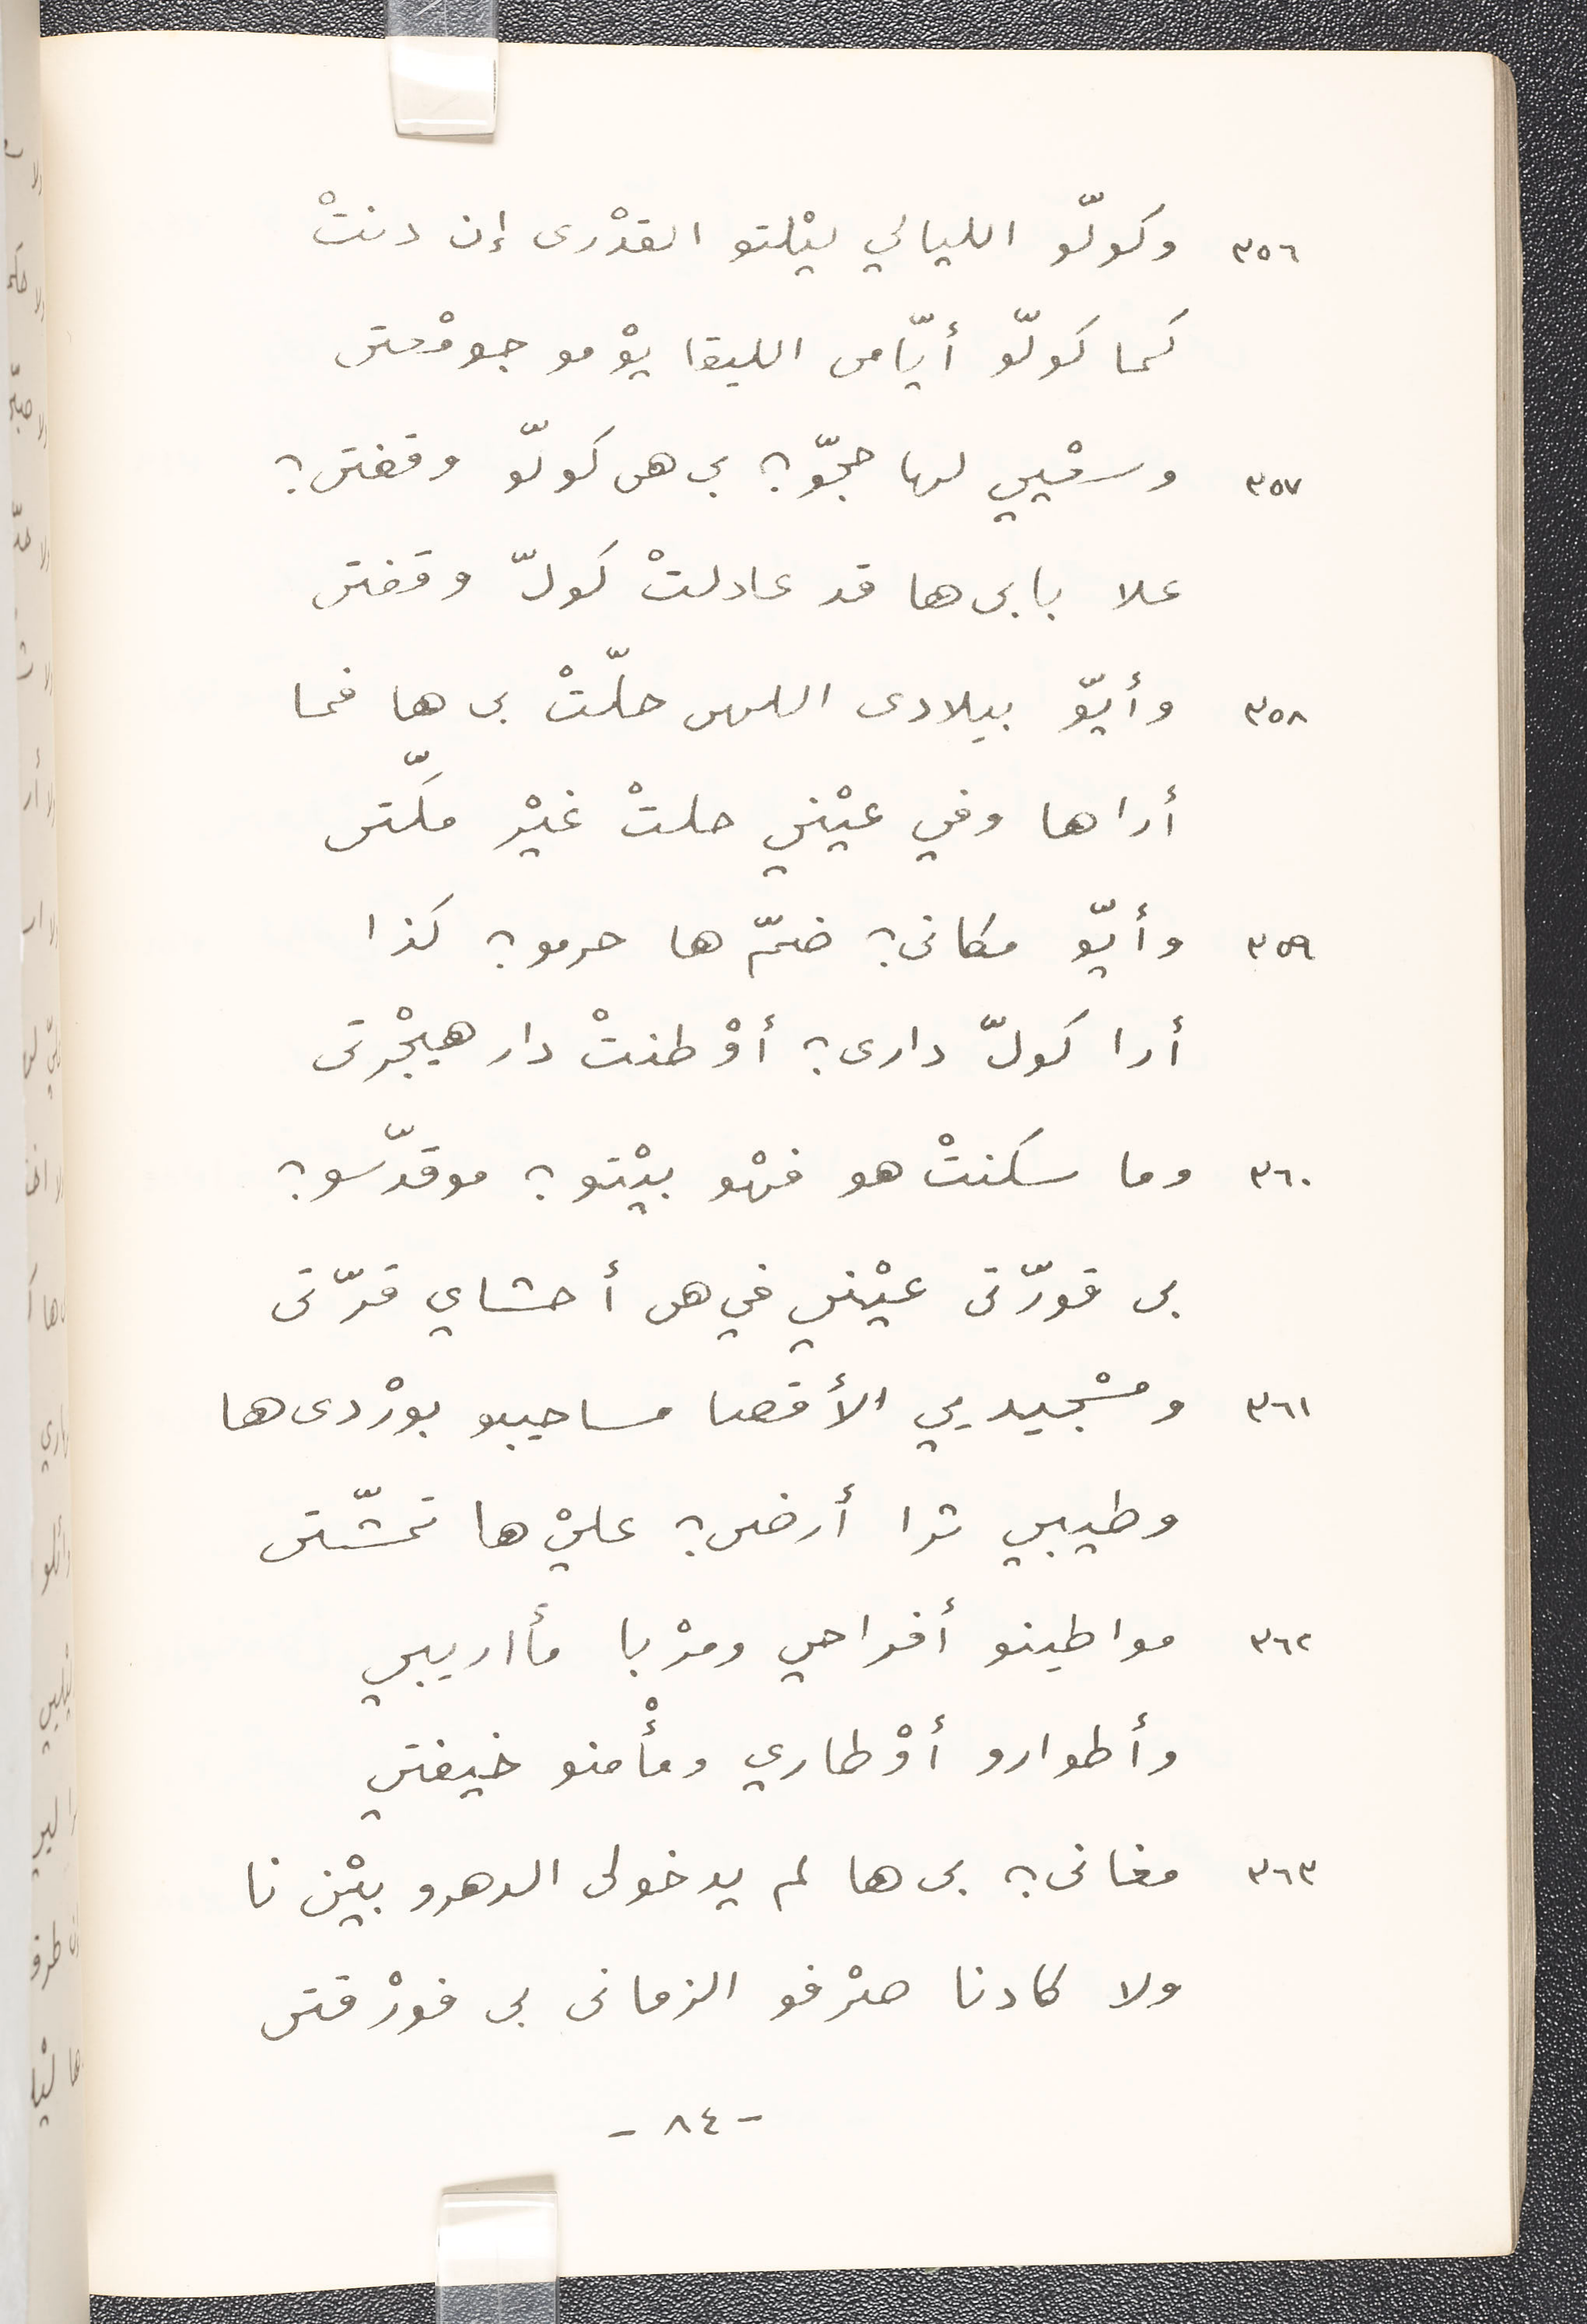 ٣٥٦ وكولّو الليالي ليْلتو القدْرى إن دنتْ
كما كولّو أيّامى الليقا يوْمو جومْعتى
٣٥٧ وسعْيي لها حجّو؟ بى هى كولّو وقفتى؟
علا بابى ها قد عادلتْ كولّ وقفتى
٣٥٨ وأيّو بيلادى اللهى حلّتْ بى ها فما
أراها وفي عيْني حلتْ غيْر مكّتى
٣٥٩ وأيّو مكانى؟ ضمّ ها حرمو؟ كذا
أرا كولّ دارى؟ أوْطنتْ دار هيجْرتى
٣٦٠ وما سكنتْ هو فهْو بيْتو؟ موقدّسو؟
بى قورّتى عيْني في هى أحشاي قرّتى
٣٦١ ومسْجيديي الأقصا مساحيبو بورْدى ها
وطيبي ثرا أرضى؟ عليْ ها تمشّتى
٣٦٢ مواطينو أفراحي ومرْبا مأاريبي
وأطوارو أوْطاري ومأْمنو خيفتي
٣٦٣ مغانى؟ بى ها لم يدخولى الدهرو بيْن نا
ولا كادنا صرْفو الزمانى بى فورْقتى
- ٨٤ -